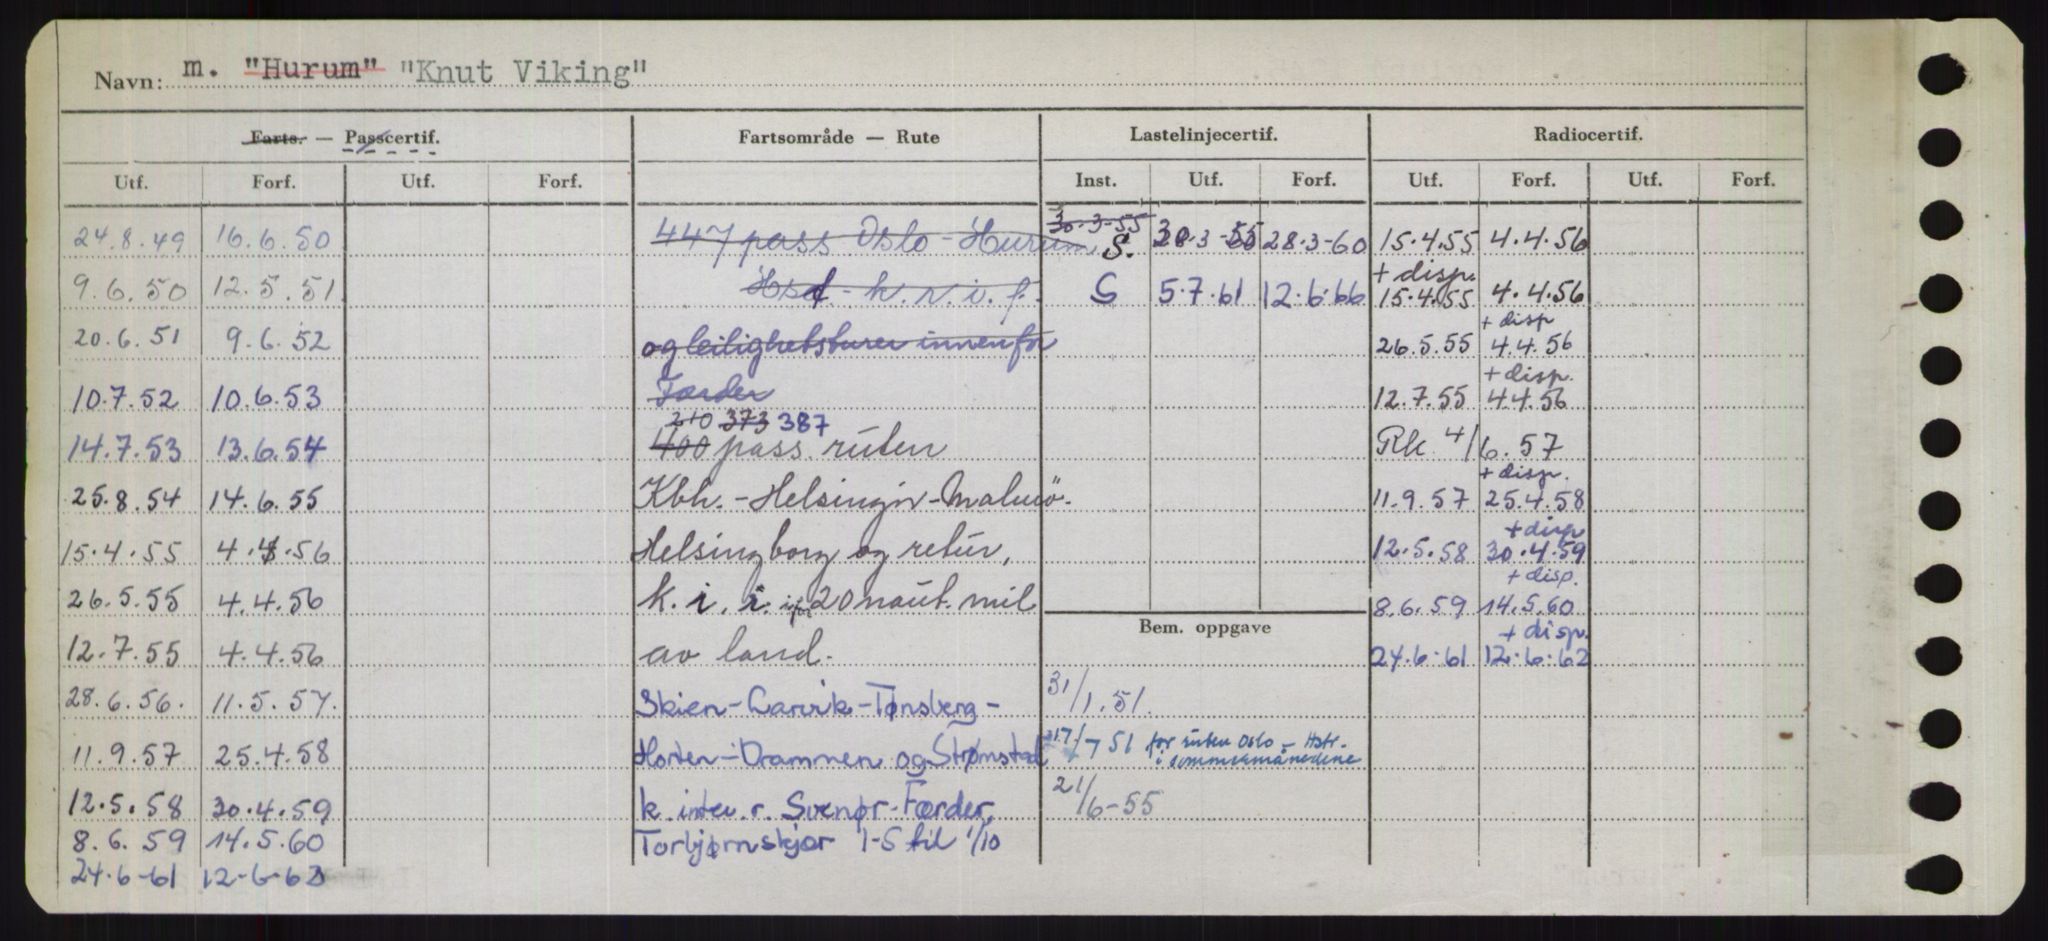 Navn: m. "Hurum" "Knut Viking"
Farts. — Passcertif. Fartsområde — Rute Lastelinjecertif. Radiocertif.
Utf. Forf. Utf. Forf. Inst. Utf. Forf. Utf. Forf. Utf. Forf.
30-3-55
24.8.49 16.6.50 447 pass Oslo - Hurum S. 28.3-60 15.4.55 4.4.56
+ disp.
9.6.50 12.5.51 k.r.i.f. S 5.7.61 12.6.66 15.4.55 4.4.56
+ disp
20.6.51 9.6.52 og leilighetsturer innenfor 26.5.55 4.4.56
+ disp.
10.7.52 10.6.53 Færder 12.7.55 4.4.56
210 373 387
14.7.53 13.6.54 400 pass. ruten Rk 4/6.57
+ disp.
25.8.54 14.6.55 Kbh. - Helsingør - Malmö- 11.9.57 25.4.58
+ disp
15.4.55 4.4.56 Helsingborg og retur, 12.5.58 30.4.59
+ disp.
26.5.55 4.4.56 k. i. i. 20 naut. mil 8.6.59 14.5.60
Bem. oppgave
+ disp.
12.7.55 4.4.56 av land. 24.6.61 12.6.62
28.6.56. 11.5.57. Skien - Larvik - Tønsberg - 31/1.51.
11.9.57 25.4.58 Horten - Drammen og Strømstad 17/7 51 for ruten Oslo - Hstr.
i sommermånedene
12.5.58 30.4.59 k. inter. r. Svenør - Færder, 21/6-55
8.6.59 14.5.60 Torbjørnskjær 1-5 til 1/10
24-6-61 12-6-62